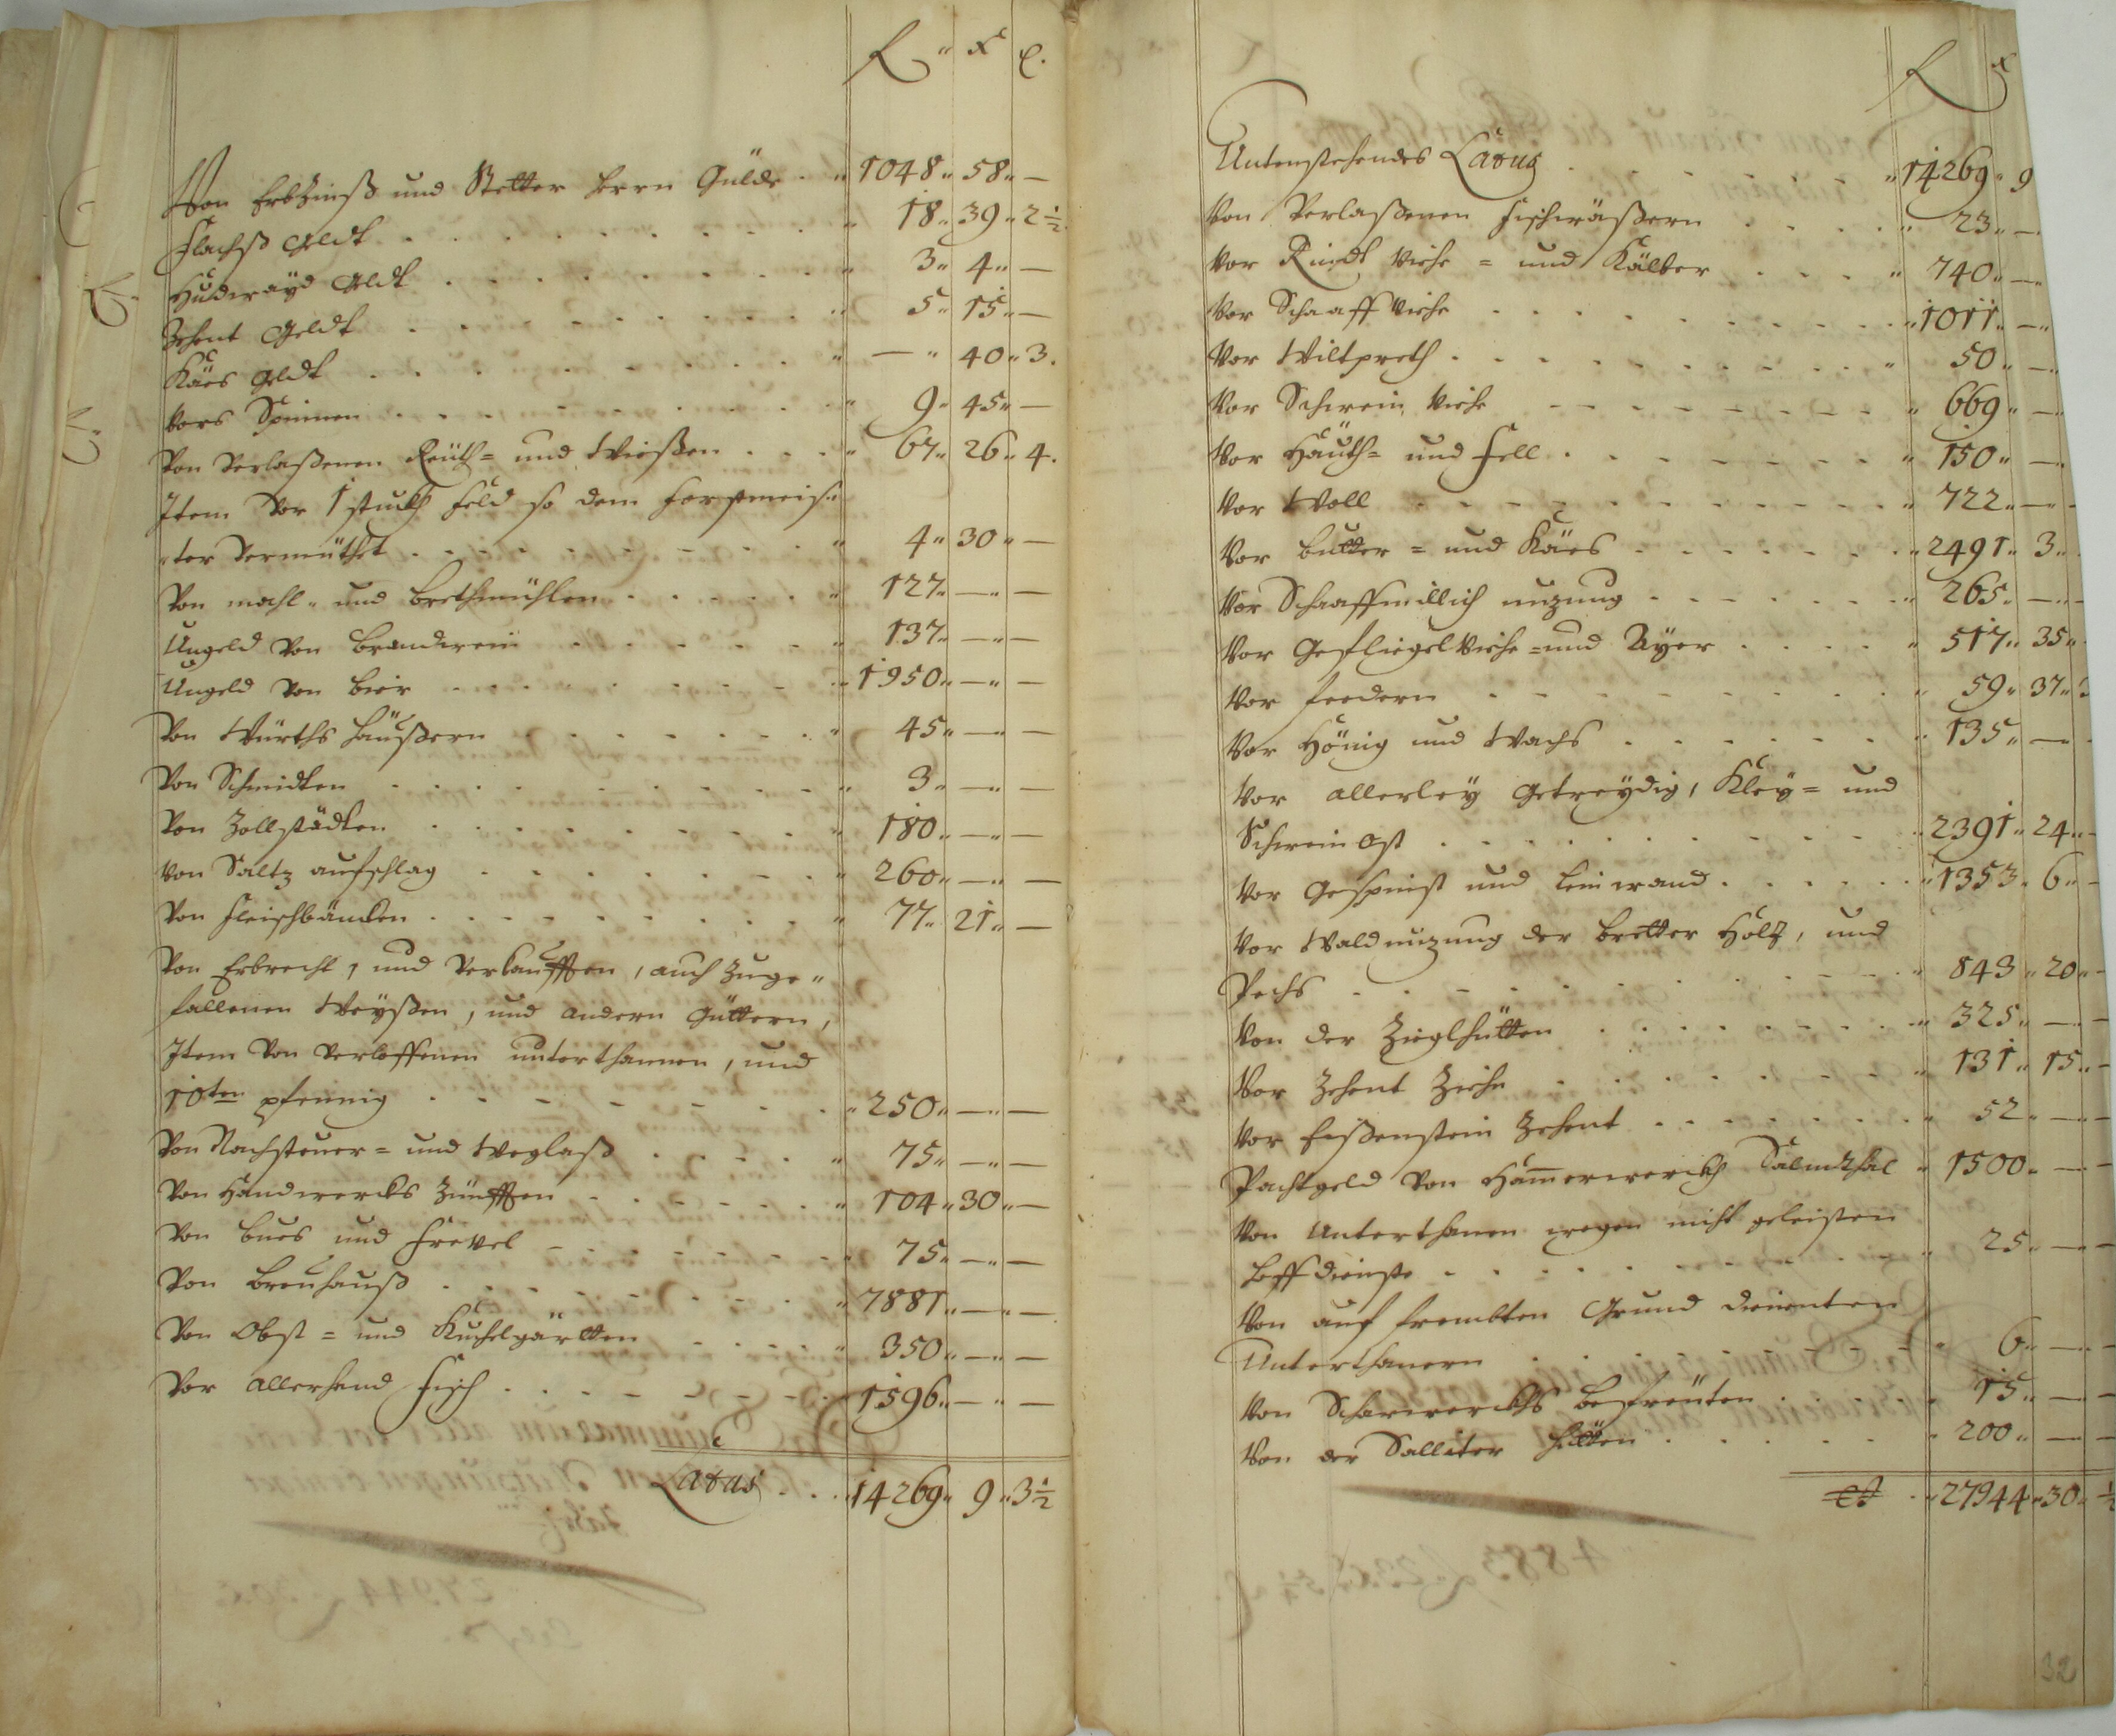 f " x d.
Von Erbzinß und Stetter herrn Gülde . " 1048 " 58 " —
Flachß geldt . . . " 18 " 39 " 2 ½
Hudwayd geldt . . . " 3 " 4 " —
Zehent Geldt . . . " 5 " 15 " —
Käes geldt . . . " — " 40 " 3.
Vors Spinnen . . . " 9 " 45 " —
Von verlaßenen Reüth = und Wießen . . . " 67 " 26 " 4.
Item Vor 1 stuckh Feld so dem Forstmeis "
" ter vermüthet . . . " 4 " 30 " —
Von mahl " und Brethmühlen . . . " 127 " — " —
Ungeld Von Brandwein . . . " 137 " — " —
Ungeld Von Bier . . . " 1950 " — " —
Von Würths häußern . . . " 45 " — " —
Von Schmidten . . . " 3 " — " —
Von Zollstädten . . . " 180 " — " —
Von Saltz aufschlag . . . " 260 " — " —
Von Fleischbänken . . . " 77 " 21 " —
Von Erbrecht, und verkaufften, auch zuge "
fallenen Weyßen, und andern Güttern,
Item Von verloffenen unterthannen, und
10ten pfennig . . . " 250 " — " —
Von Nachsteuer = und Weglaß . . . " 75 " — " —
Von Handwercks Zünfften . . . " 104 " 30 " —
Von bues und Frevel . . . " 75 " — " —
Von Breuhauß . . . " 7881 " — " —
Von Obst = und Kuchelgärtten . . . " 350 " — " —
Vor allerhand Fisch . . . " 1596 " — " —
Latus . . . " 14269 " 9 " 3 ½
f x
Untenstehendes Latus . . . " 14269 " 9
Von Verlaßenen Fischwäßern . . . " 23 " —
Vor Rindt Viehe = und Kälber . . . " 740 " —
Vor Schaaff Viehe . . . " 1011 " —
Vor Wiltpreth . . . " 50 " —
Vor Schwein Viehe . . . " 669 " —
Vor Häuth = und Fell . . . " 150 " —
Vor Woll . . . " 722 " —
Vor Butter = und Käes . . . " 2491 " 3 "
Vor Schaaffmillich nuzung . . . " 265 " —
Vor Gefliegel Viehe = und Ayer . . . " 517 " 35 "
Vor Feedern . . . " 59 " 37 "
Vor Hönig und Wachs . . . " 135 " —
Vor allerley Getreydig, Kley = und
Schwein Ast . . . " 2391 " 24 "
Vor Gespinst und Leinwand . . . " 1353 " 6 "
Vor Waldnuzung der Bretter Holtz, und
Pechs . . . " 843 " 20 "
Von der Zieglhütten . . . " 325 " —
Vor Zehent Viehe . . . " 131 " 15 "
Vor Zehent . . . " 52 " —
Pachtgeld Von Hammerwerckh Salmthal " 1500 " —
Von Unterthanen wegen nicht geleisten
Hoffdienste . . . " 25 " —
Von auf frembten Grund dienenten
Unterthanern . . . " 6 " —
Von Scharwerckhs befreüten . . . " 15 " —
Von der Salliter hütten . . . " 200 " —
" 27944 " 30 " ½
32